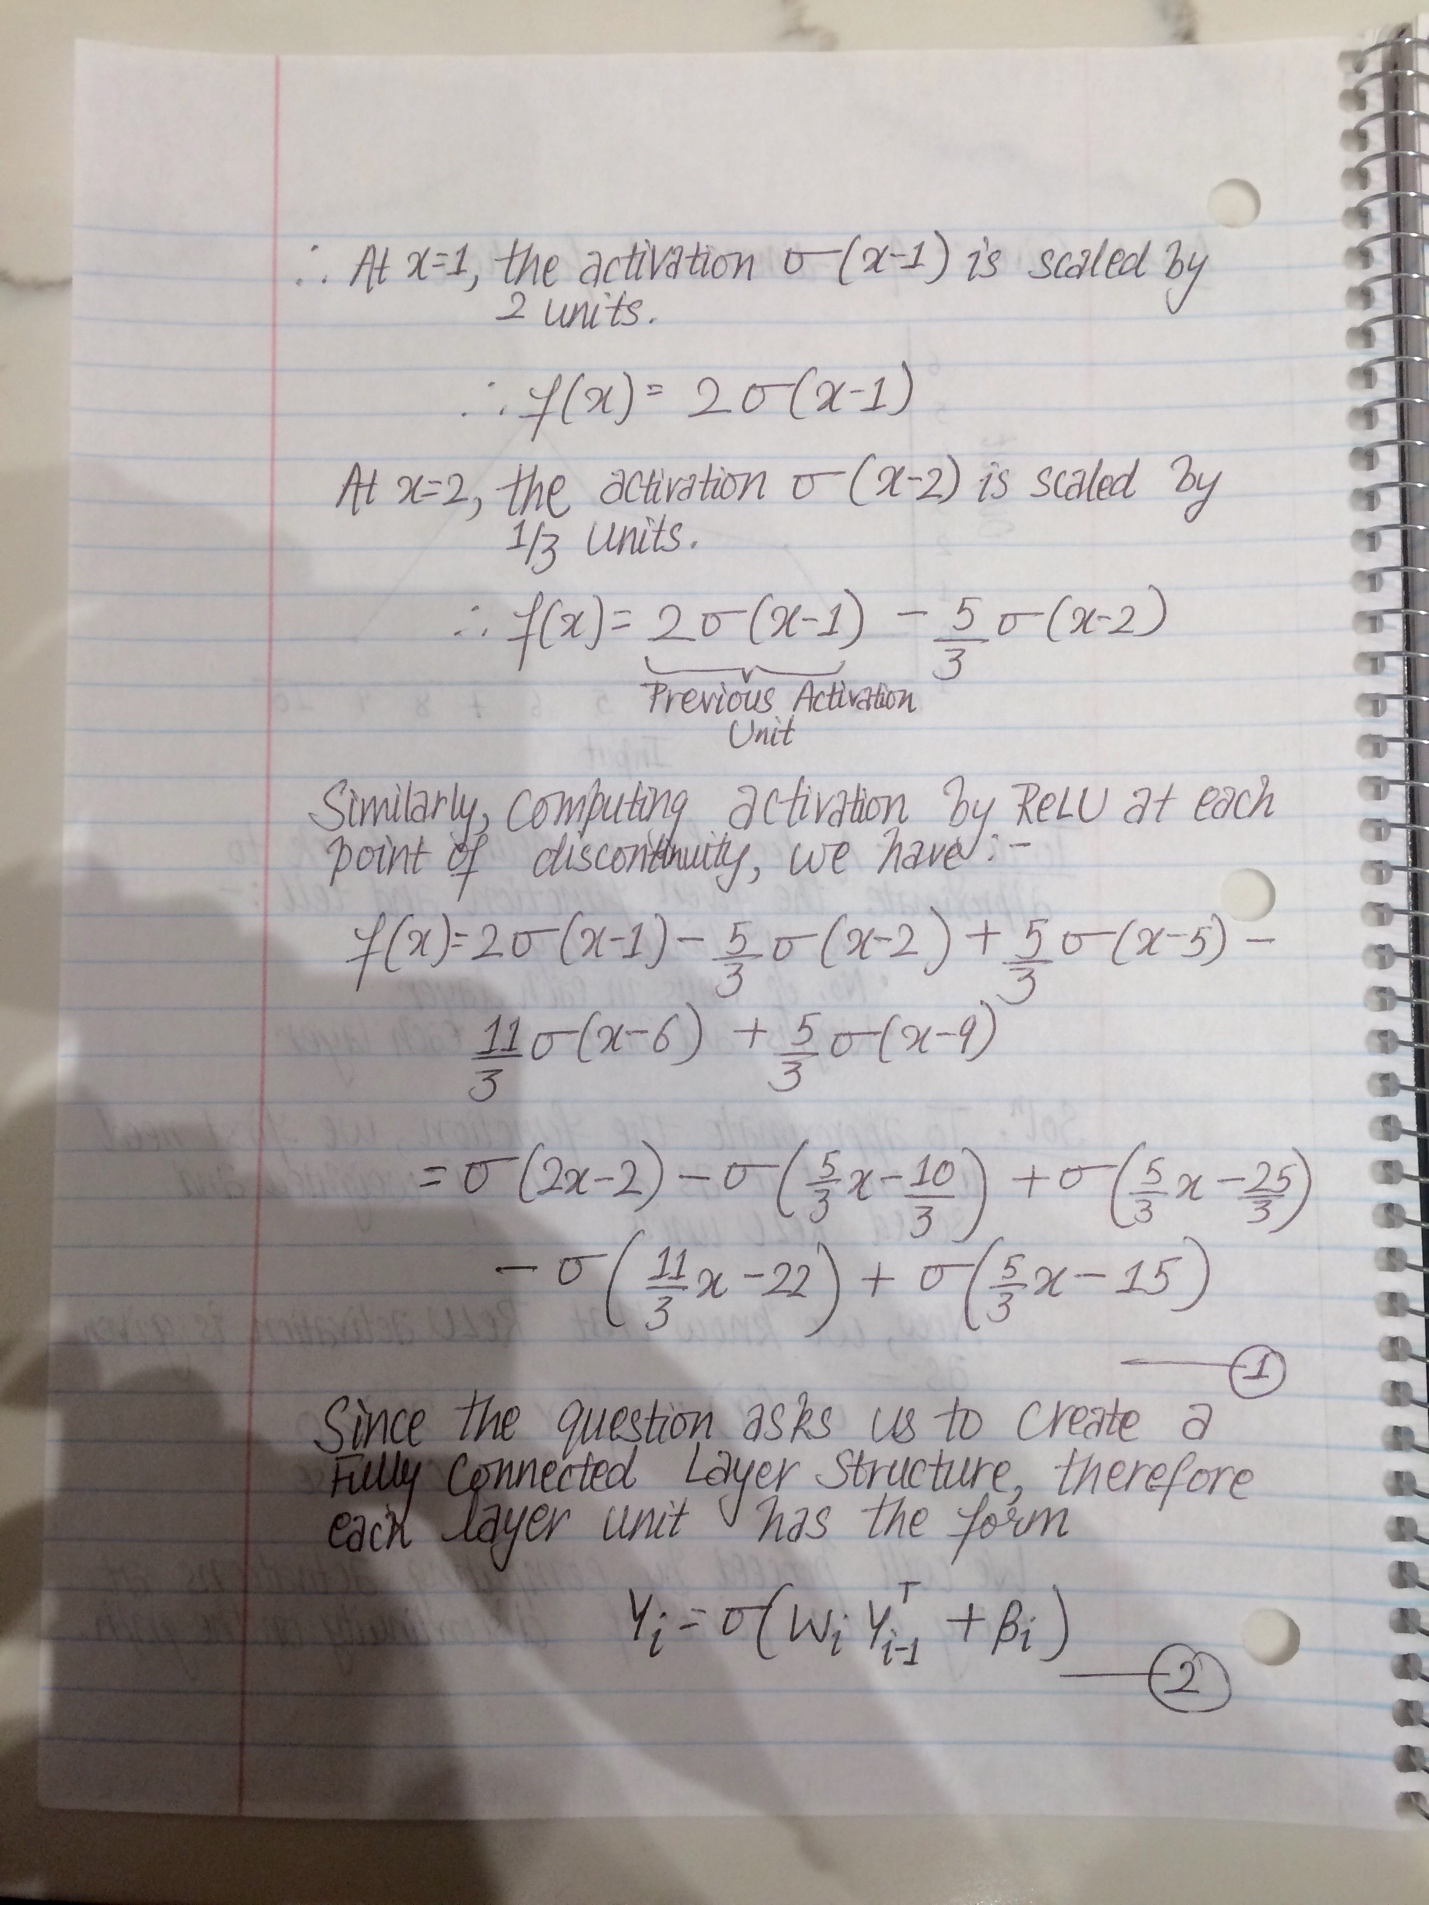 ∴ At x=1, the activation σ(x-1) is scaled by
2 units.
∴ f(x) = 2σ(x-1)
At x=2, the activation σ(x-2) is scaled by
1/3 units.
∴ f(x) = 2σ(x-1) - 5/3 σ(x-2)
Previous Activation
Unit
Similarly, computing activation by ReLU at each
point of discontinuity, we have:-
f(x) = 2σ(x-1) - 5/3 σ(x-2) + 5/3 σ(x-5) -
11/3 σ(x-6) + 5/3 σ(x-9)
= σ(2x-2) - σ(5/3 x - 10/3) + σ(5/3 x - 25/3)
- σ(11/3 x - 22) + σ(5/3 x - 15)
1
Since the question asks us to create a
Fully Connected Layer Structure, therefore
each layer unit has the form
Yᵢ = σ(Wᵢ Yᵢ₋₁ᵀ + βᵢ)
2